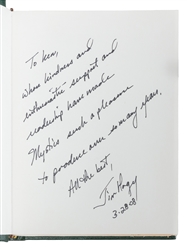 To Ken,
whose kindness and
enthusiastic support and
readership have made
Mystics such a pleasure
to produce over so many years.
All the best,
Jim
3-28-08